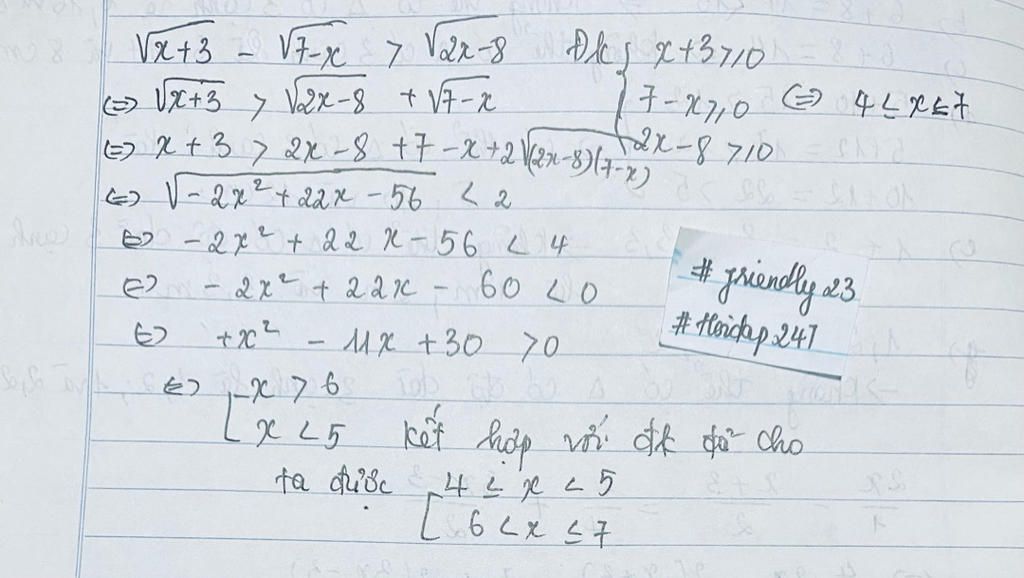 √x+3 - √7-x > √2x-8 Đk { x+3 ≥ 0
⇔ √x+3 > √2x-8 + √7-x 7-x ≥ 0 ⇔ 4 ≤ x ≤ 7
⇔ x+3 > 2x-8 + 7 -x + 2√(2x-8)(7-x) 2x-8 ≥ 0
⇔ √-2x² + 22x - 56 < 2
⇔ -2x² + 22x - 56 < 4
⇔ -2x² + 22x - 60 < 0
⇔ +x² - 11x + 30 > 0
⇔ [ x > 6
x < 5 kết hợp với đk đã cho
ta được [ 4 ≤ x < 5
6 < x ≤ 7
# friendly23
# Hoidap247